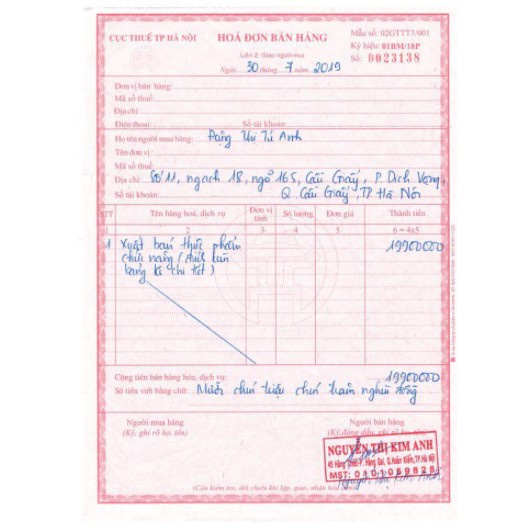 CỤC THUẾ TP HÀ NỘI
HOÁ ĐƠN BÁN HÀNG
Liên 2: Giao người mua
Ngày 30 tháng 7 năm 2019
Mẫu số: 02GTTT3/001
Ký hiệu: 01BM/18P
Số: 0023138
Đơn vị bán hàng:
Mã số thuế:
Địa chỉ:
Điện thoại: Số tài khoản:
Họ tên người mua hàng: Đặng Tú Anh
Tên đơn vị:
Mã số thuế:
Địa chỉ: Số 11, ngách 18, ngõ 165, Cầu Giấy, P. Dịch Vọng,
Số tài khoản: Q. Cầu Giấy, TP Hà Nội
STT Tên hàng hoá, dịch vụ Đơn vị tính Số lượng Đơn giá Thành tiền
1 2 3 4 5 6 = 4x5
1 Xuất bán thực phẩm 19900000
chức năng (đính kèm
bảng kê chi tiết)
Cộng tiền bán hàng hóa, dịch vụ: 19900000
Số tiền viết bằng chữ: Mười chín triệu chín trăm nghìn đồng
Người mua hàng
(Ký, ghi rõ họ, tên)
Người bán hàng
(Ký, đóng dấu, ghi rõ họ, tên)
NGUYỄN THỊ KIM ANH
MST: 0101069828
Nguyễn Thị Kim Anh
(Cần kiểm tra, đối chiếu khi lập, giao, nhận hóa đơn)